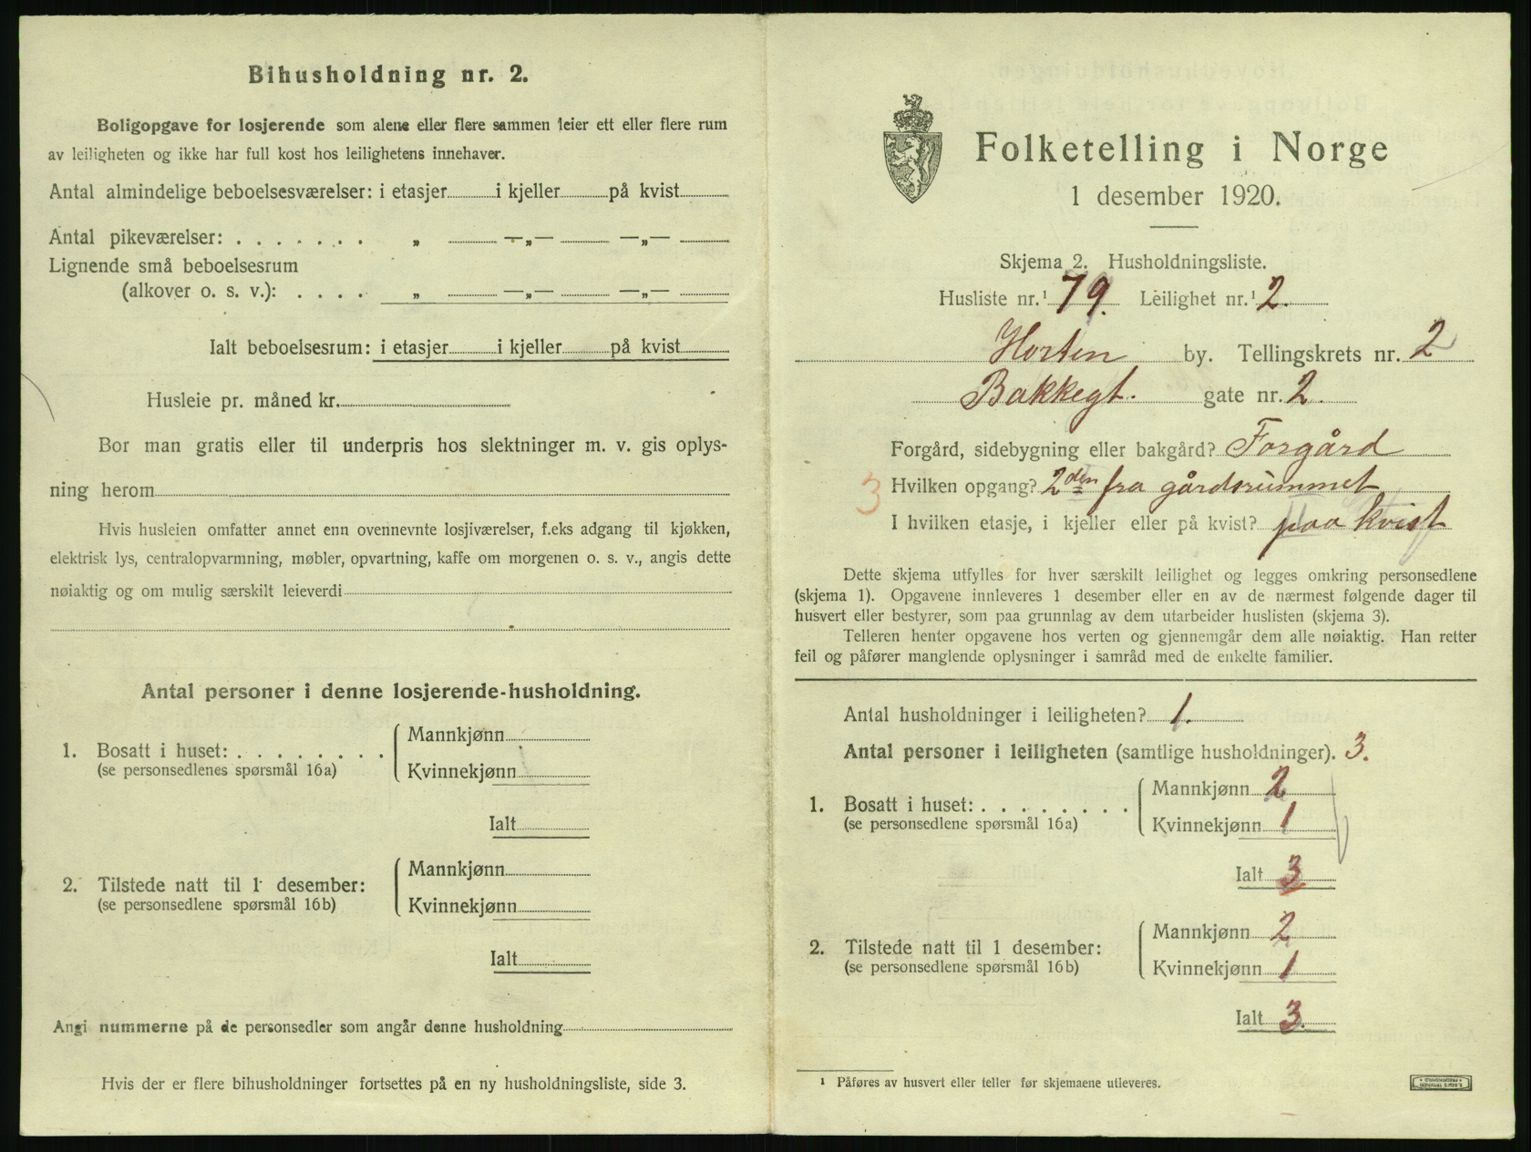 Bihusholdning nr. 2.
Boligopgave for losjerende som alene eller flere sammen leier ett eller flere rum
av leiligheten og ikke har full kost hos leilighetens innehaver.
Antal almindelige beboelsesværelser: i etasjer i kjeller på kvist
Antal pikeværelser: . . . . . . . „ —„— —„—
Lignende små beboelsesrum
(alkover o. s. v.): . . . . „ —„— —„—
Ialt beboelsesrum: i etasjer i kjeller på kvist
Husleie pr. måned kr.
Bor man gratis eller til underpris hos slektninger m. v. gis oplys-
ning herom
Hvis husleien omfatter annet enn ovennevnte losjiværelser, f.eks adgang til kjøkken,
elektrisk lys, centralopvarmning, møbler, opvartning, kaffe om morgenen o. s. v., angis dette
nøiaktig og om mulig særskilt leieverdi
Antal personer i denne losjerende-husholdning.
1. Bosatt i huset: . . . . . . . .
(se personsedlenes spørsmål 16a)
Mannkjønn
Kvinnekjønn
Ialt
2. Tilstede natt til 1 desember:
(se personsedlene spørsmål 16b)
Mannkjønn
Kvinnekjønn
Ialt
Angi nummerne på de personsedler som angår denne husholdning
Hvis der er flere bihusholdninger fortsettes på en ny husholdningsliste, side 3.
Folketelling i Norge
1 desember 1920.
Skjema 2. Husholdningsliste.
Husliste nr.¹ 79. Leilighet nr.¹ 2.
Horten by. Tellingskrets nr. 2
Bakkegt. gate nr. 2.
Forgård, sidebygning eller bakgård? Forgård
3 Hvilken opgang? 2den fra gårdsrummet
I hvilken etasje, i kjeller eller på kvist? paa kvist
Dette skjema utfylles for hver særskilt leilighet og legges omkring personsedlene
(skjema 1). Opgavene innleveres 1 desember eller en av de nærmest følgende dager til
husvert eller bestyrer, som paa grunnlag av dem utarbeider huslisten (skjema 3).
Telleren henter opgavene hos verten og gjennemgår dem alle nøiaktig. Han retter
feil og påfører manglende oplysninger i samråd med de enkelte familier.
Antal husholdninger i leiligheten? 1.
Antal personer i leiligheten (samtlige husholdninger). 3.
1. Bosatt i huset: . . . . . . . .
(se personsedlene spørsmål 16a)
Mannkjønn 2
Kvinnekjønn 1
Ialt 3
2. Tilstede natt til 1 desember:
(se personsedlene spørsmål 16b)
Mannkjønn 2
Kvinnekjønn 1
Ialt 3.
¹ Påføres av husvert eller teller før skjemaene utleveres.